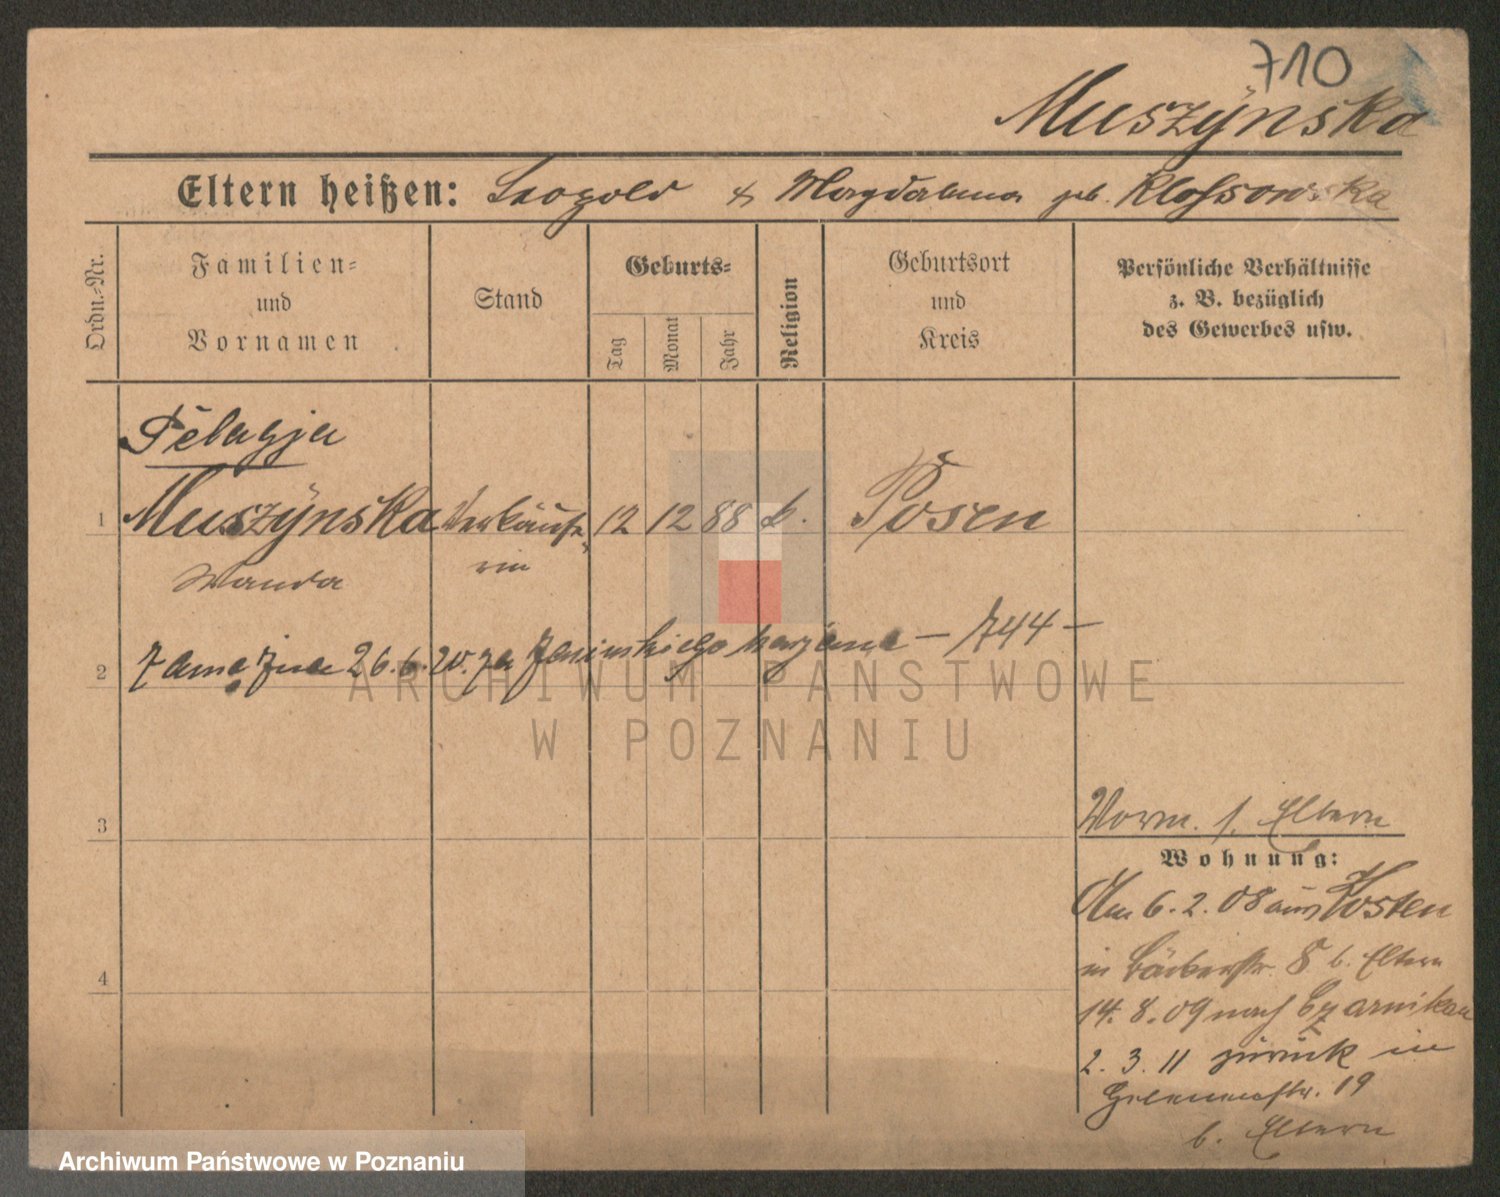 710
Muszÿnska
Eltern heißen: Leopold & Magdalena geb. Klossowska
Ordn.-Nr.
Familien-
und
Vornamen
Stand
Geburts-
Tag
Monat
Jahr
Religion
Geburtsort
und
Kreis
Persönliche Verhältnisse
z. B. bezüglich
des Gewerbes usw.
Pelagja
1 Muszÿnska Verkäufe- 12 12 88 k. Posen
Wanda rin
2 Zamężna 26.6.20. za Marjana — 744 —
ARCHIWUM PAŃSTWOWE
W POZNANIU
3
Vorm. s. Eltern
Wohnung:
Am 6.2.08 aus Kosten
in Bäckerstr. 8 b. Eltern
4
14.8.09 nach Czarnikau
2.3.11 zurück in
19
b. Eltern
Archiwum Państwowe w Poznaniu